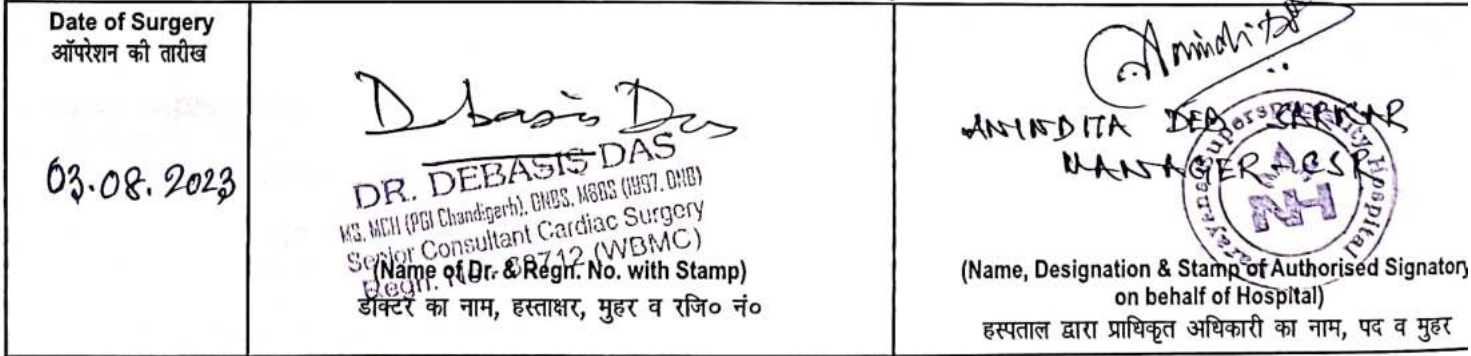 Date of Surgery
ऑपरेशन की तारीख
03.08.2023
Debasis Das
DR. DEBASIS DAS
MS, MCH (PGI Chandigarh), DNBS, MBBS (1997, DNB)
Senior Consultant Cardiac Surgery
Regn. No. 58712 (WBMC)
(Name of Dr. & Regn. No. with Stamp)
डॉक्टर का नाम, हस्ताक्षर, मुहर व रजि० नं०
ANINDITA DEB SARKAR
MANAGER - CSR
Narayana Superspeciality Hospital
NH
(Name, Designation & Stamp of Authorised Signatory
on behalf of Hospital)
हस्पताल द्वारा प्राधिकृत अधिकारी का नाम, पद व मुहर